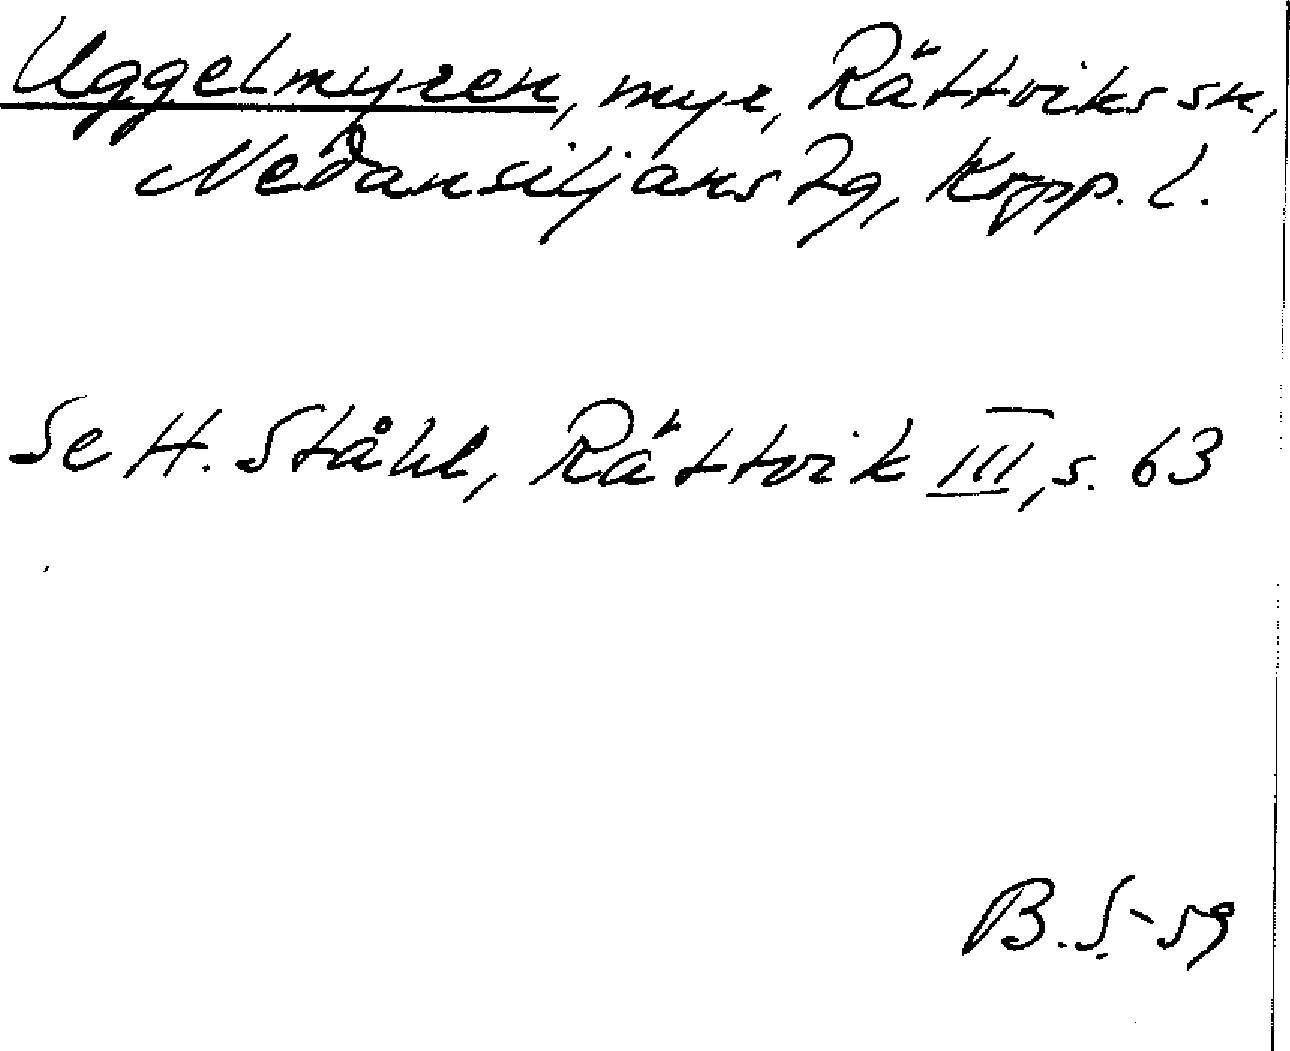 Uggelmyren, myr, Rättviks sn,
Nedansiljans Lg, Kopp. l.
Se H. Ståhl, Rättvik III, s. 63
B. S. -59